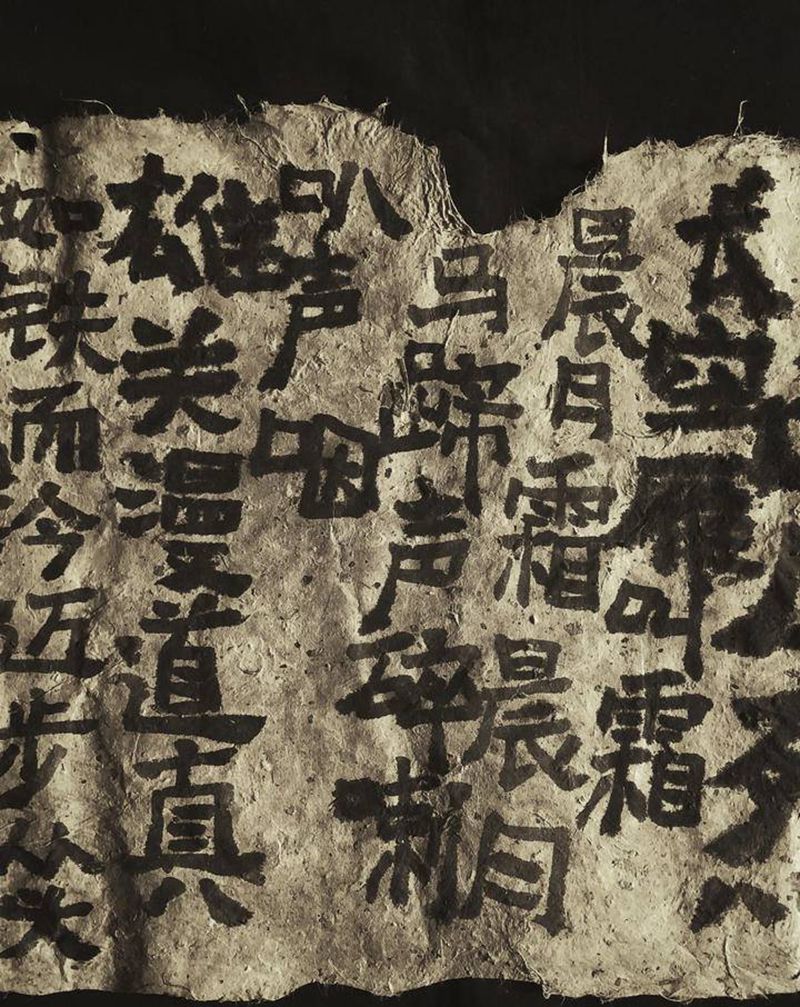 烈
长空雁叫霜
晨月霜晨月
马蹄声碎喇
叭声咽
雄关漫道真
如铁而今迈步从头